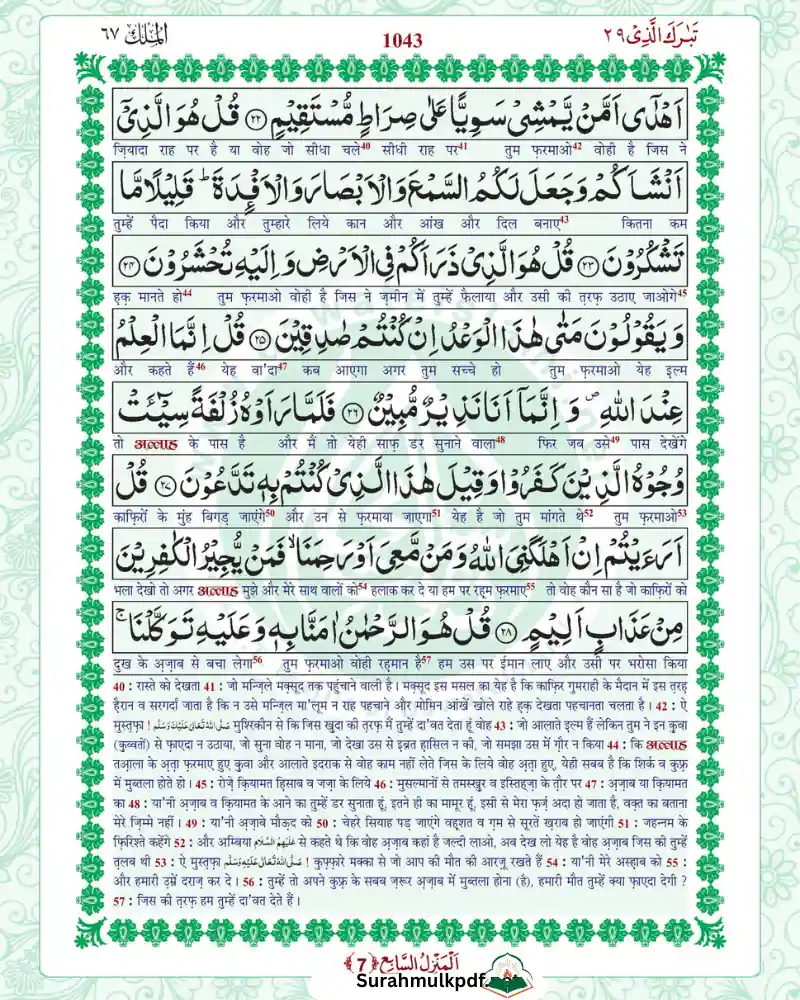 تَبٰرَكَ الَّذِیْ ٢٩
1043
اَلْمُلْك ٦٧
اَهْدٰۤى اَمَّنْ یَّمْشِیْ سَوِیًّا عَلٰى صِرَاطٍ مُّسْتَقِیْمٍ ﴿۲۲﴾ قُلْ هُوَ الَّذِیْۤ
ज़ियादा राह पर है या वोह जो सीधा चले40 सीधी राह पर41 तुम फ़रमाओ42 वोही है जिस ने
اَنْشَاَكُمْ وَ جَعَلَ لَكُمُ السَّمْعَ وَ الْاَبْصَارَ وَ الْاَفْـِٕدَةَ ؕ قَلِیْلًا مَّا
तुम्हें पैदा किया और तुम्हारे लिये कान और आंख और दिल बनाए43 कितना कम
تَشْكُرُوْنَ ﴿۲۳﴾ قُلْ هُوَ الَّذِیْ ذَرَاَكُمْ فِی الْاَرْضِ وَ اِلَیْهِ تُحْشَرُوْنَ ﴿۲۴﴾
हक़ मानते हो44 तुम फ़रमाओ वोही है जिस ने ज़मीन में तुम्हें फैलाया और उसी की त़रफ़ उठाए जाओगे45
وَ یَقُوْلُوْنَ مَتٰى هٰذَا الْوَعْدُ اِنْ كُنْتُمْ صٰدِقِیْنَ ﴿۲۵﴾ قُلْ اِنَّمَا الْعِلْمُ
और कहते हैं46 येह वा'दा47 कब आएगा अगर तुम सच्चे हो तुम फ़रमाओ येह इल्म
عِنْدَ اللّٰهِ ۪ وَ اِنَّمَاۤ اَنَا نَذِیْرٌ مُّبِیْنٌ ﴿۲۶﴾ فَلَمَّا رَاَوْهُ زُلْفَةً سِیْٓــٴَـتْ
तो के पास है और मैं तो येही साफ़ डर सुनाने वाला48 फिर जब उसे49 पास देखेंगे
وُجُوْهُ الَّذِیْنَ كَفَرُوْا وَ قِیْلَ هٰذَا الَّذِیْ كُنْتُمْ بِهٖ تَدَّعُوْنَ ﴿۲۷﴾ قُلْ
काफ़िरों के मुंह बिगड़ जाएंगे50 और उन से फ़रमाया जाएगा51 येह है जो तुम मांगते थे52 तुम फ़रमाओ53
اَرَءَیْتُمْ اِنْ اَهْلَكَنِیَ اللّٰهُ وَ مَنْ مَّعِیَ اَوْ رَحِمَنَا ۙ فَمَنْ یُّجِیْرُ الْكٰفِرِیْنَ
भला देखो तो अगर मुझे और मेरे साथ वालों को54 हलाक कर दे या हम पर रह़म फ़रमाए55 तो वोह कौन सा है जो काफ़िरों को
مِنْ عَذَابٍ اَلِیْمٍ ﴿۲۸﴾ قُلْ هُوَ الرَّحْمٰنُ اٰمَنَّا بِهٖ وَ عَلَیْهِ تَوَكَّلْنَا ۚ
दुख के अ़ज़ाब से बचा लेगा56 तुम फ़रमाओ वोही रह़मान है57 हम उस पर ईमान लाए और उसी पर भरोसा किया
40 : रास्ते को देखता 41 : जो मन्ज़िले मक़्सूद तक पहुंचाने वाली है। मक़्सूद इस मसल का येह है कि काफ़िर गुमराही के मैदान में इस त़रह़
हैरान व सरगर्दां जाता है कि न उसे मन्ज़िल मा'लूम न राह पहचाने और मोमिन आंखें खोले राहे ह़क़ देखता पहचानता चलता है। 42 : ऐ
मुस्त़फ़ा صَلَّى اللّٰهُ تَعَالٰى عَلَيْهِ وَسَلَّم ! मुश्रिकीन से कि जिस ख़ुदा की त़रफ़ मैं तुम्हें दा'वत देता हूं वोह 43 : जो आलाते इल्म हैं लेकिन तुम ने इन क़ुवा
(क़ुव्वतों) से फ़ाएदा न उठाया, जो सुना वोह न माना, जो देखा उस से इब्रत ह़ासिल न की, जो समझा उस में ग़ौर न किया 44 : कि
तआ़ला के अ़त़ा फ़रमाए हुए क़ुवा और आलाते इदराक से वोह काम नहीं लेते जिस के लिये वोह अ़त़ा हुए, येही सबब है कि शिर्क व कुफ़्र
में मुब्तला होते हो। 45 : रोज़े क़ियामत ह़िसाब व जज़ा के लिये 46 : मुसल्मानों से तमस्ख़ुर व इस्तिह्ज़ा के त़ौर पर 47 : अ़ज़ाब या क़ियामत
का 48 : या'नी अ़ज़ाब व क़ियामत के आने का तुम्हें डर सुनाता हूं, इतने ही का मामूर हूं, इसी से मेरा फ़र्ज़ अदा हो जाता है, वक़्त का बताना
मेरे ज़िम्मे नहीं। 49 : या'नी अ़ज़ाबे मौऊ़द को 50 : चेहरे सियाह पड़ जाएंगे वह़्शत व ग़म से सूरतें ख़राब हो जाएंगी 51 : जहन्नम के
फ़िरिश्ते कहेंगे 52 : और अम्बिया عَلَيْهِمُ السَّلَام से कहते थे कि वोह अ़ज़ाब कहां है जल्दी लाओ, अब देख लो येह है वोह अ़ज़ाब जिस की तुम्हें
त़लब थी 53 : ऐ मुस्त़फ़ा صَلَّى اللّٰهُ تَعَالٰى عَلَيْهِ وَسَلَّم ! कुफ़्फ़ारे मक्का से जो आप की मौत की आरज़ू रखते हैं 54 : या'नी मेरे अस्ह़ाब को 55 :
और हमारी उ़म्रें दराज़ कर दे। 56 : तुम्हें तो अपने कुफ़्र के सबब ज़रूर अ़ज़ाब में मुब्तला होना (है), हमारी मौत तुम्हें क्या फ़ाएदा देगी ?
57 : जिस की त़रफ़ हम तुम्हें दा'वत देते हैं।
اَلْمَنْزِلُ السَّابِع ﴿7﴾
Surahmulkpdf.